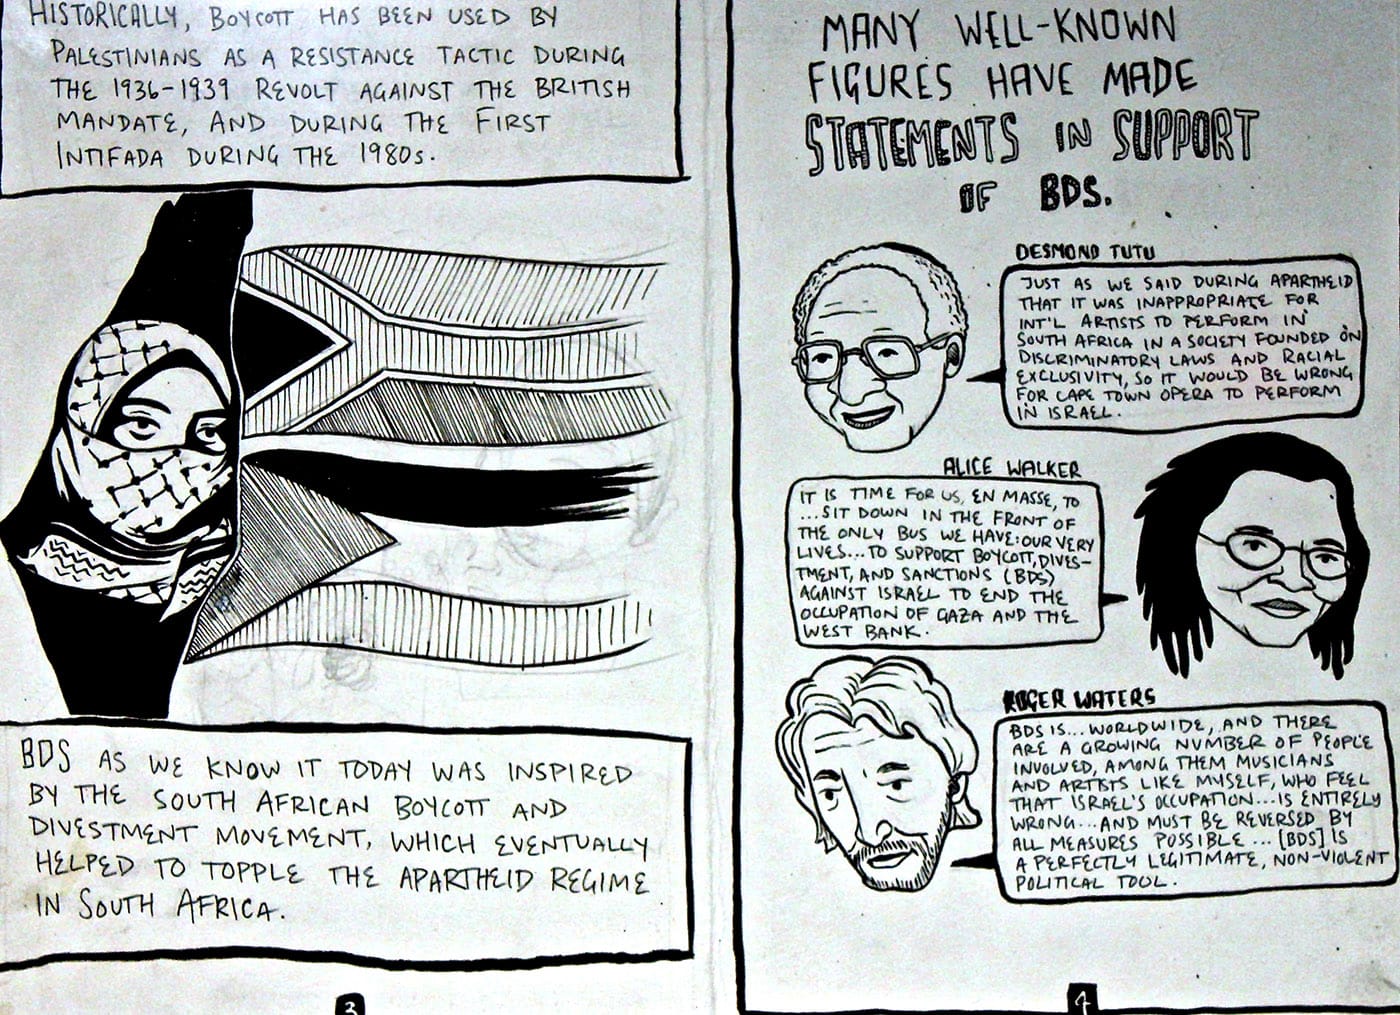 HISTORICALLY, BOYCOTT HAS BEEN USED BY
PALESTINIANS AS A RESISTANCE TACTIC DURING
THE 1936-1939 REVOLT AGAINST THE BRITISH
MANDATE, AND DURING THE FIRST
INTIFADA DURING THE 1980s.
BDS AS WE KNOW IT TODAY WAS INSPIRED
BY THE SOUTH AFRICAN BOYCOTT AND
DIVESTMENT MOVEMENT, WHICH EVENTUALLY
HELPED TO TOPPLE THE APARTHEID REGIME
IN SOUTH AFRICA.
3
MANY WELL-KNOWN
FIGURES HAVE MADE
STATEMENTS IN SUPPORT
OF BDS.
DESMOND TUTU
JUST AS WE SAID DURING APARTHEID
THAT IT WAS INAPPROPRIATE FOR
INT'L ARTISTS TO PERFORM IN
SOUTH AFRICA IN A SOCIETY FOUNDED ON
DISCRIMINATORY LAWS AND RACIAL
EXCLUSIVITY, SO IT WOULD BE WRONG
FOR CAPE TOWN OPERA TO PERFORM
IN ISRAEL.
ALICE WALKER
IT IS TIME FOR US, EN MASSE, TO
...SIT DOWN IN THE FRONT OF
THE ONLY BUS WE HAVE: OUR VERY
LIVES...TO SUPPORT BOYCOTT, DIVES-
TMENT, AND SANCTIONS (BDS)
AGAINST ISRAEL TO END THE
OCCUPATION OF GAZA AND THE
WEST BANK.
ROGER WATERS
BDS IS... WORLDWIDE, AND THERE
ARE A GROWING NUMBER OF PEOPLE
INVOLVED, AMONG THEM MUSICIANS
AND ARTISTS LIKE MYSELF, WHO FEEL
THAT ISRAEL'S OCCUPATION...IS ENTIRELY
WRONG...AND MUST BE REVERSED BY
ALL MEASURES POSSIBLE... [BDS] IS
A PERFECTLY LEGITIMATE, NON-VIOLENT
POLITICAL TOOL.
4